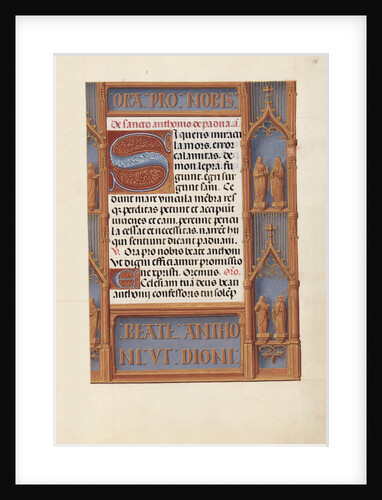 ORA·PRO·NOBIS·
De sancto anthonio de padua. a͂
Si queris miracu
la mors, error
calamitas. de
mon. lepra. fu
giunt. egri sur
gunt sani. Ce
dunt mare vincula mēbra res
qȝ perditas petunt et accipiūt
iuuenes et cani. pereunt pericu
la cessat et necessitas. narrēt hii
qui sentiunt dicant paduani.
V. Ora pro nobis beate anthoni
vt digni efficiamur promissio
ne xpisti. Oremus. Oro.
Ecclesiam tuā deus beati
anthonij confessoris tui solēp
·BEATE·ANTHO
NI·VT·DIGNI·